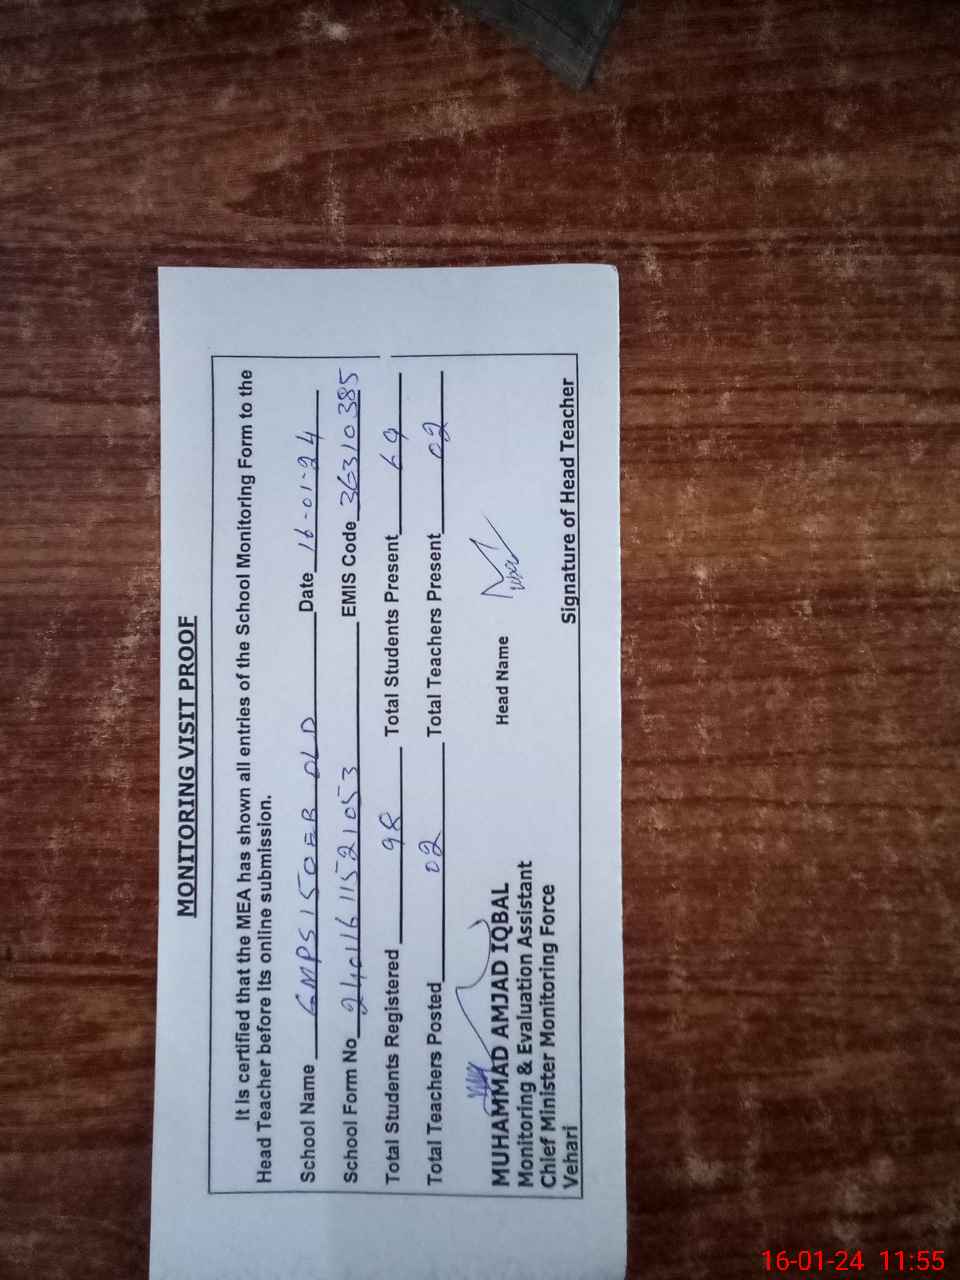 MONITORING VISIT PROOF
It is certified that the MEA has shown all entries of the School Monitoring Form to the
Head Teacher before its online submission.
School Name GMPS 150EB OLD Date 16-01-24
School Form No 240116115521053 EMIS Code 36310385
Total Students Registered 98 Total Students Present 69
Total Teachers Posted 02 Total Teachers Present 02
MUHAMMAD AMJAD IQBAL Head Name
Monitoring & Evaluation Assistant
Chief Minister Monitoring Force
Vehari Signature of Head Teacher
16-01-24 11:55